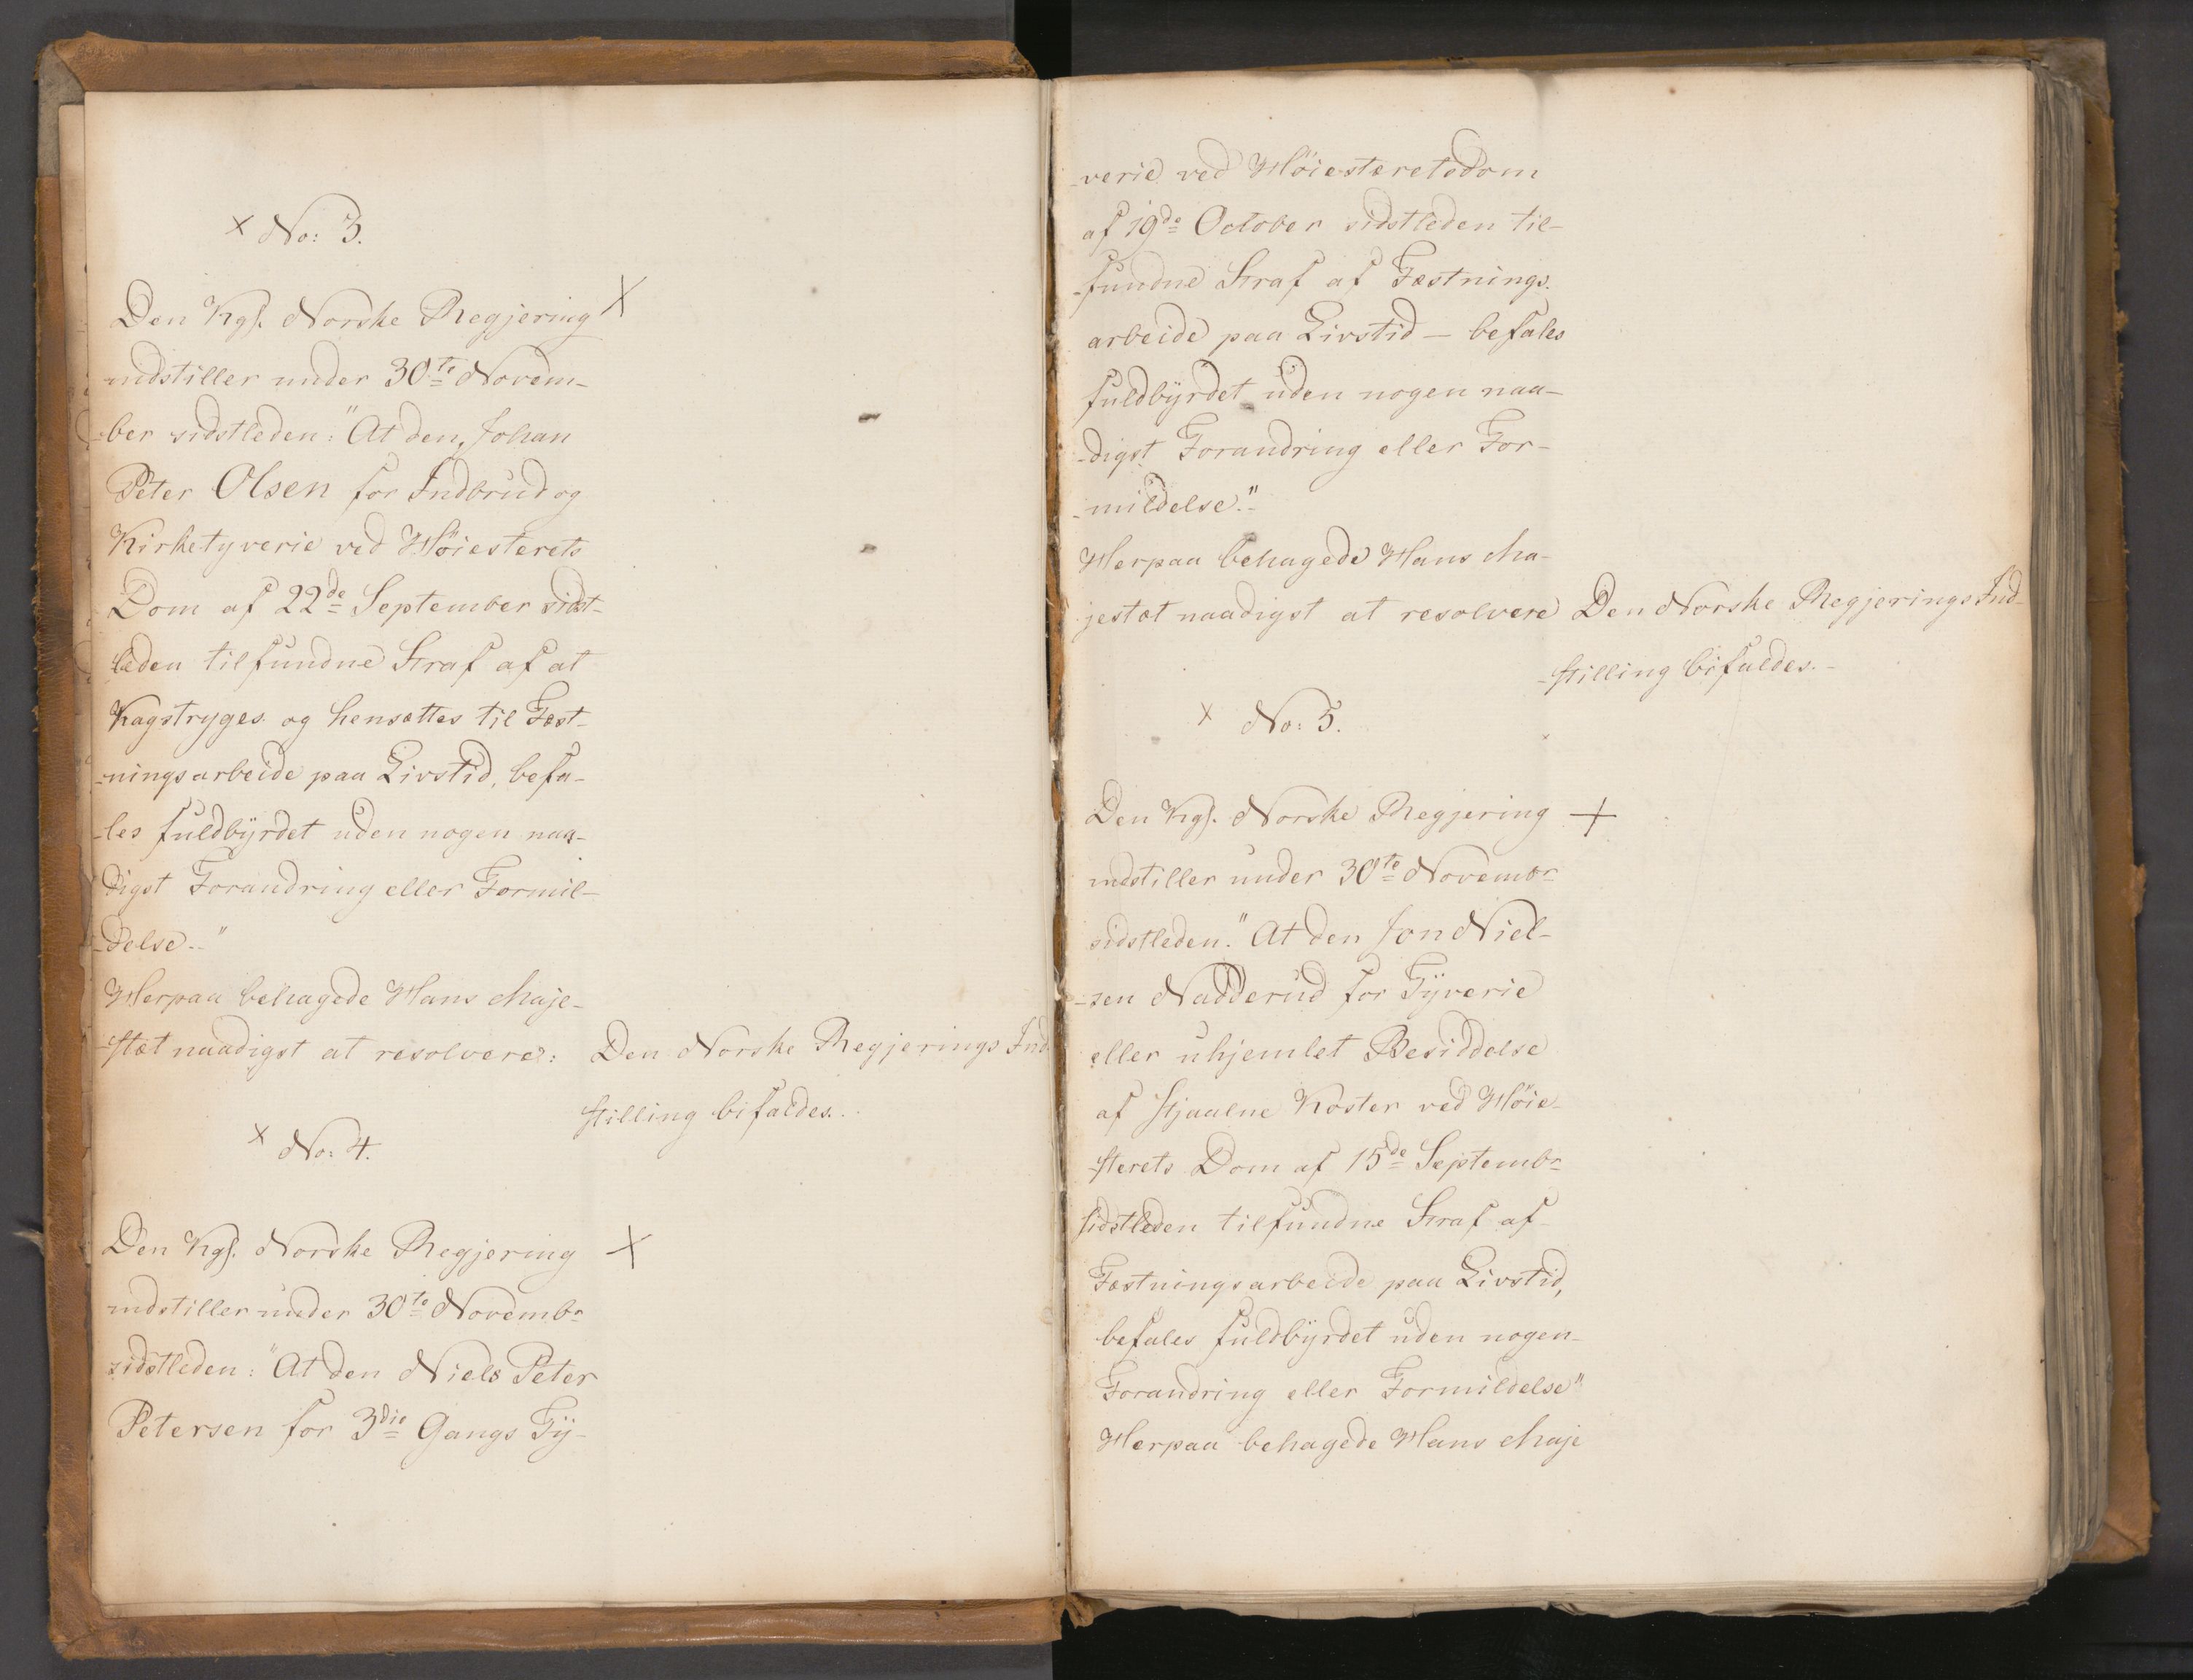 × No: 3.
Den Kgl. Norske Regjering ×
indstiller under 30te Novem-
-ber sidstleden: "At den, Johan
Peter Olsen for Indbrud og
Kirketyverie ved Höiesterets
Dom af 22de September sidst-
leden tilfundne Straf af at
Kagstryges og hensættes til Fæst-
-ningsarbeide paa Livstid, befa-
-les fuldbyrdet uden nogen naa-
digst Forandring eller Formil-
-delse.-"
Herpaa behagede Hans Maje-
-stæt naadigst at resolvere: Den Norske Regjerings Ind-
stilling bifaldes.
× No: 4.
Den Kgl. Norske Regjering ×
indstiller under 30te Novembr
sidstleden: "At den Niels Peter
Petersen for 3die Gangs Ty-
-verie ved Höiesteretsdom
af 19de October sidstleden til-
-fundne Straf af Fæstnings-
arbeide paa Livstid — befales
fuldbyrdet uden nogen naa-
-digst Forandring eller For-
-mildelse."-
Herpaa behagede Hans Ma-
jestæt naadigst at resolvere Den Norske Regjerings Ind-
-stilling bifaldes.-
× No: 5.
Den Kgl. Norske Regjering +
indstiller under 30te Novembr
sidstleden. "At den Jon Niel-
-sen Nadderud for Tyverie
eller uhjemlet Besiddelse
af stjaalne Koster ved Höie-
-sterets Dom af 15de Septembr
sidstleden tilfundne Straf af
Fæstningsarbeide paa Livstid,
befales fuldbyrdet uden nogen
Forandring eller Formildelse"
Herpaa behagede Hans Maje